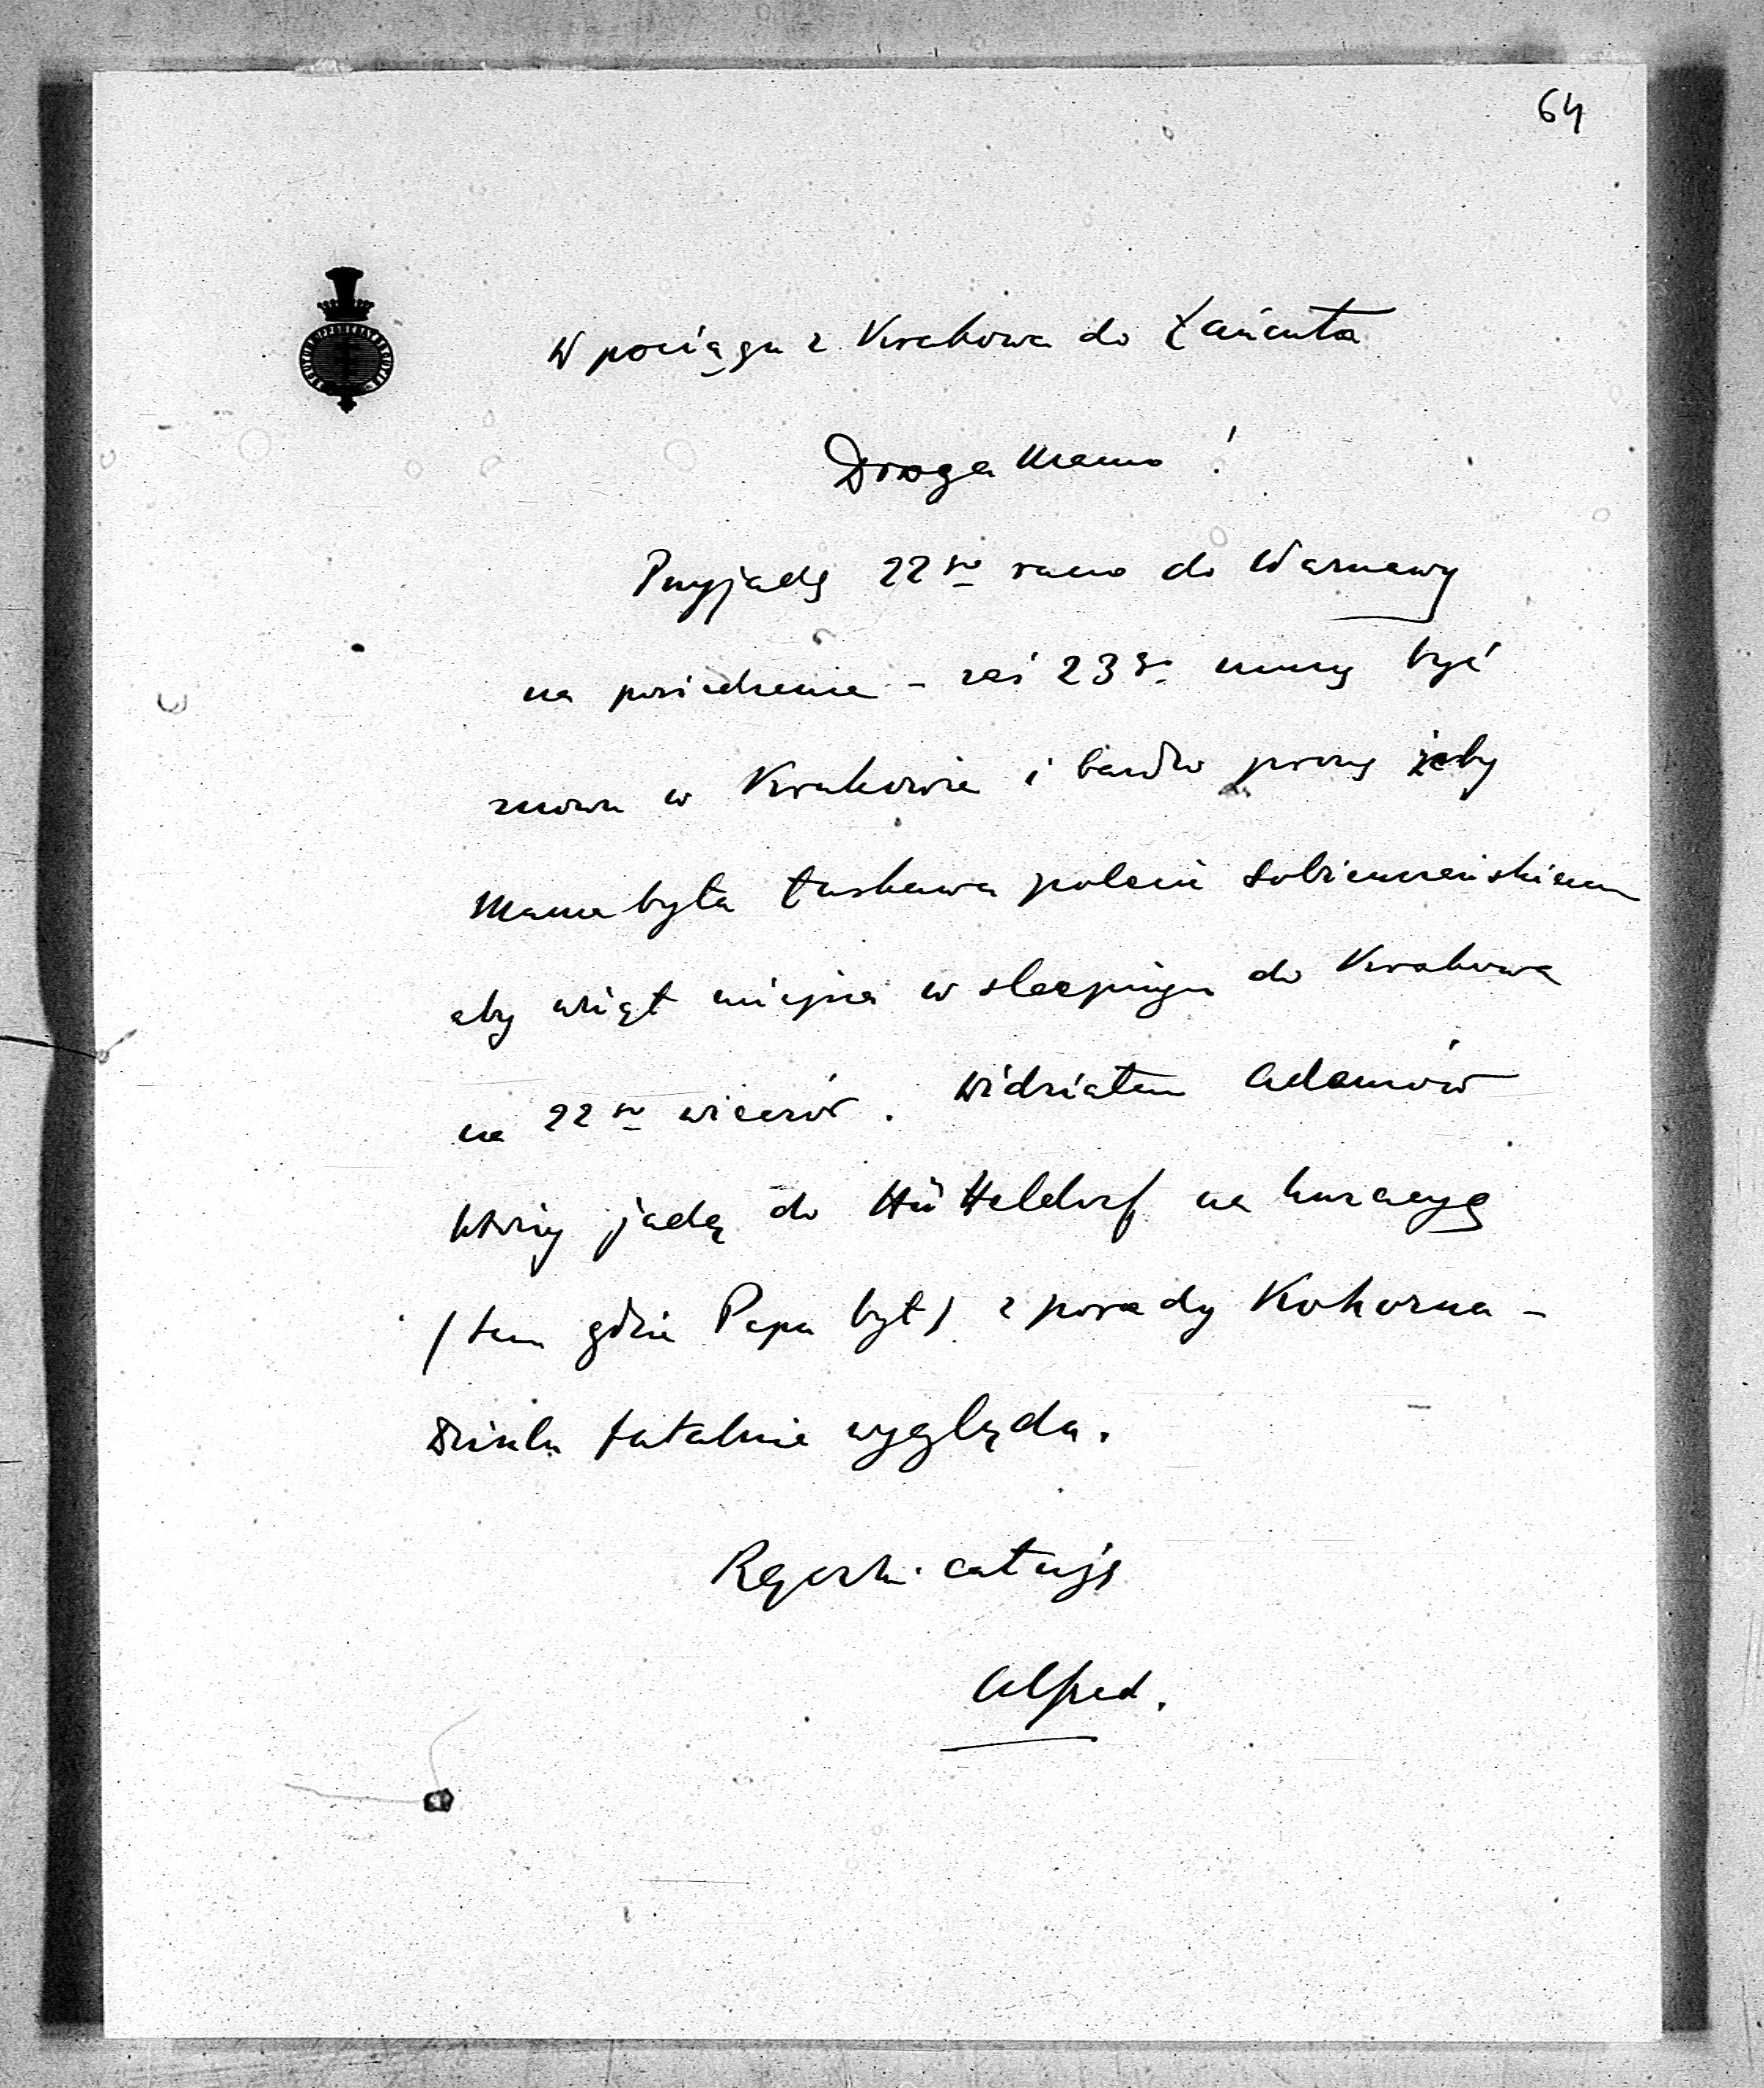 64
W pociągu z Krakowa do Łańcuta
Droga Mamo!
Przyjadę 22go rano do Warszawy
na posiedzenie – zaś 23go muszę być
znowu w Krakowie i bardzo proszę żeby
Mama była łaskawa polecić Sobiemrańskiemu
aby wziął miejsce w sleepingu do Krakowa
na 22go wieczór. Widziałem Adamów
którzy jadą do Hütteldorf na kurację
(tam gdzie Papa był) z porady Kohorna –
fatalnie wygląda.
Rączki całuję
Alfred.